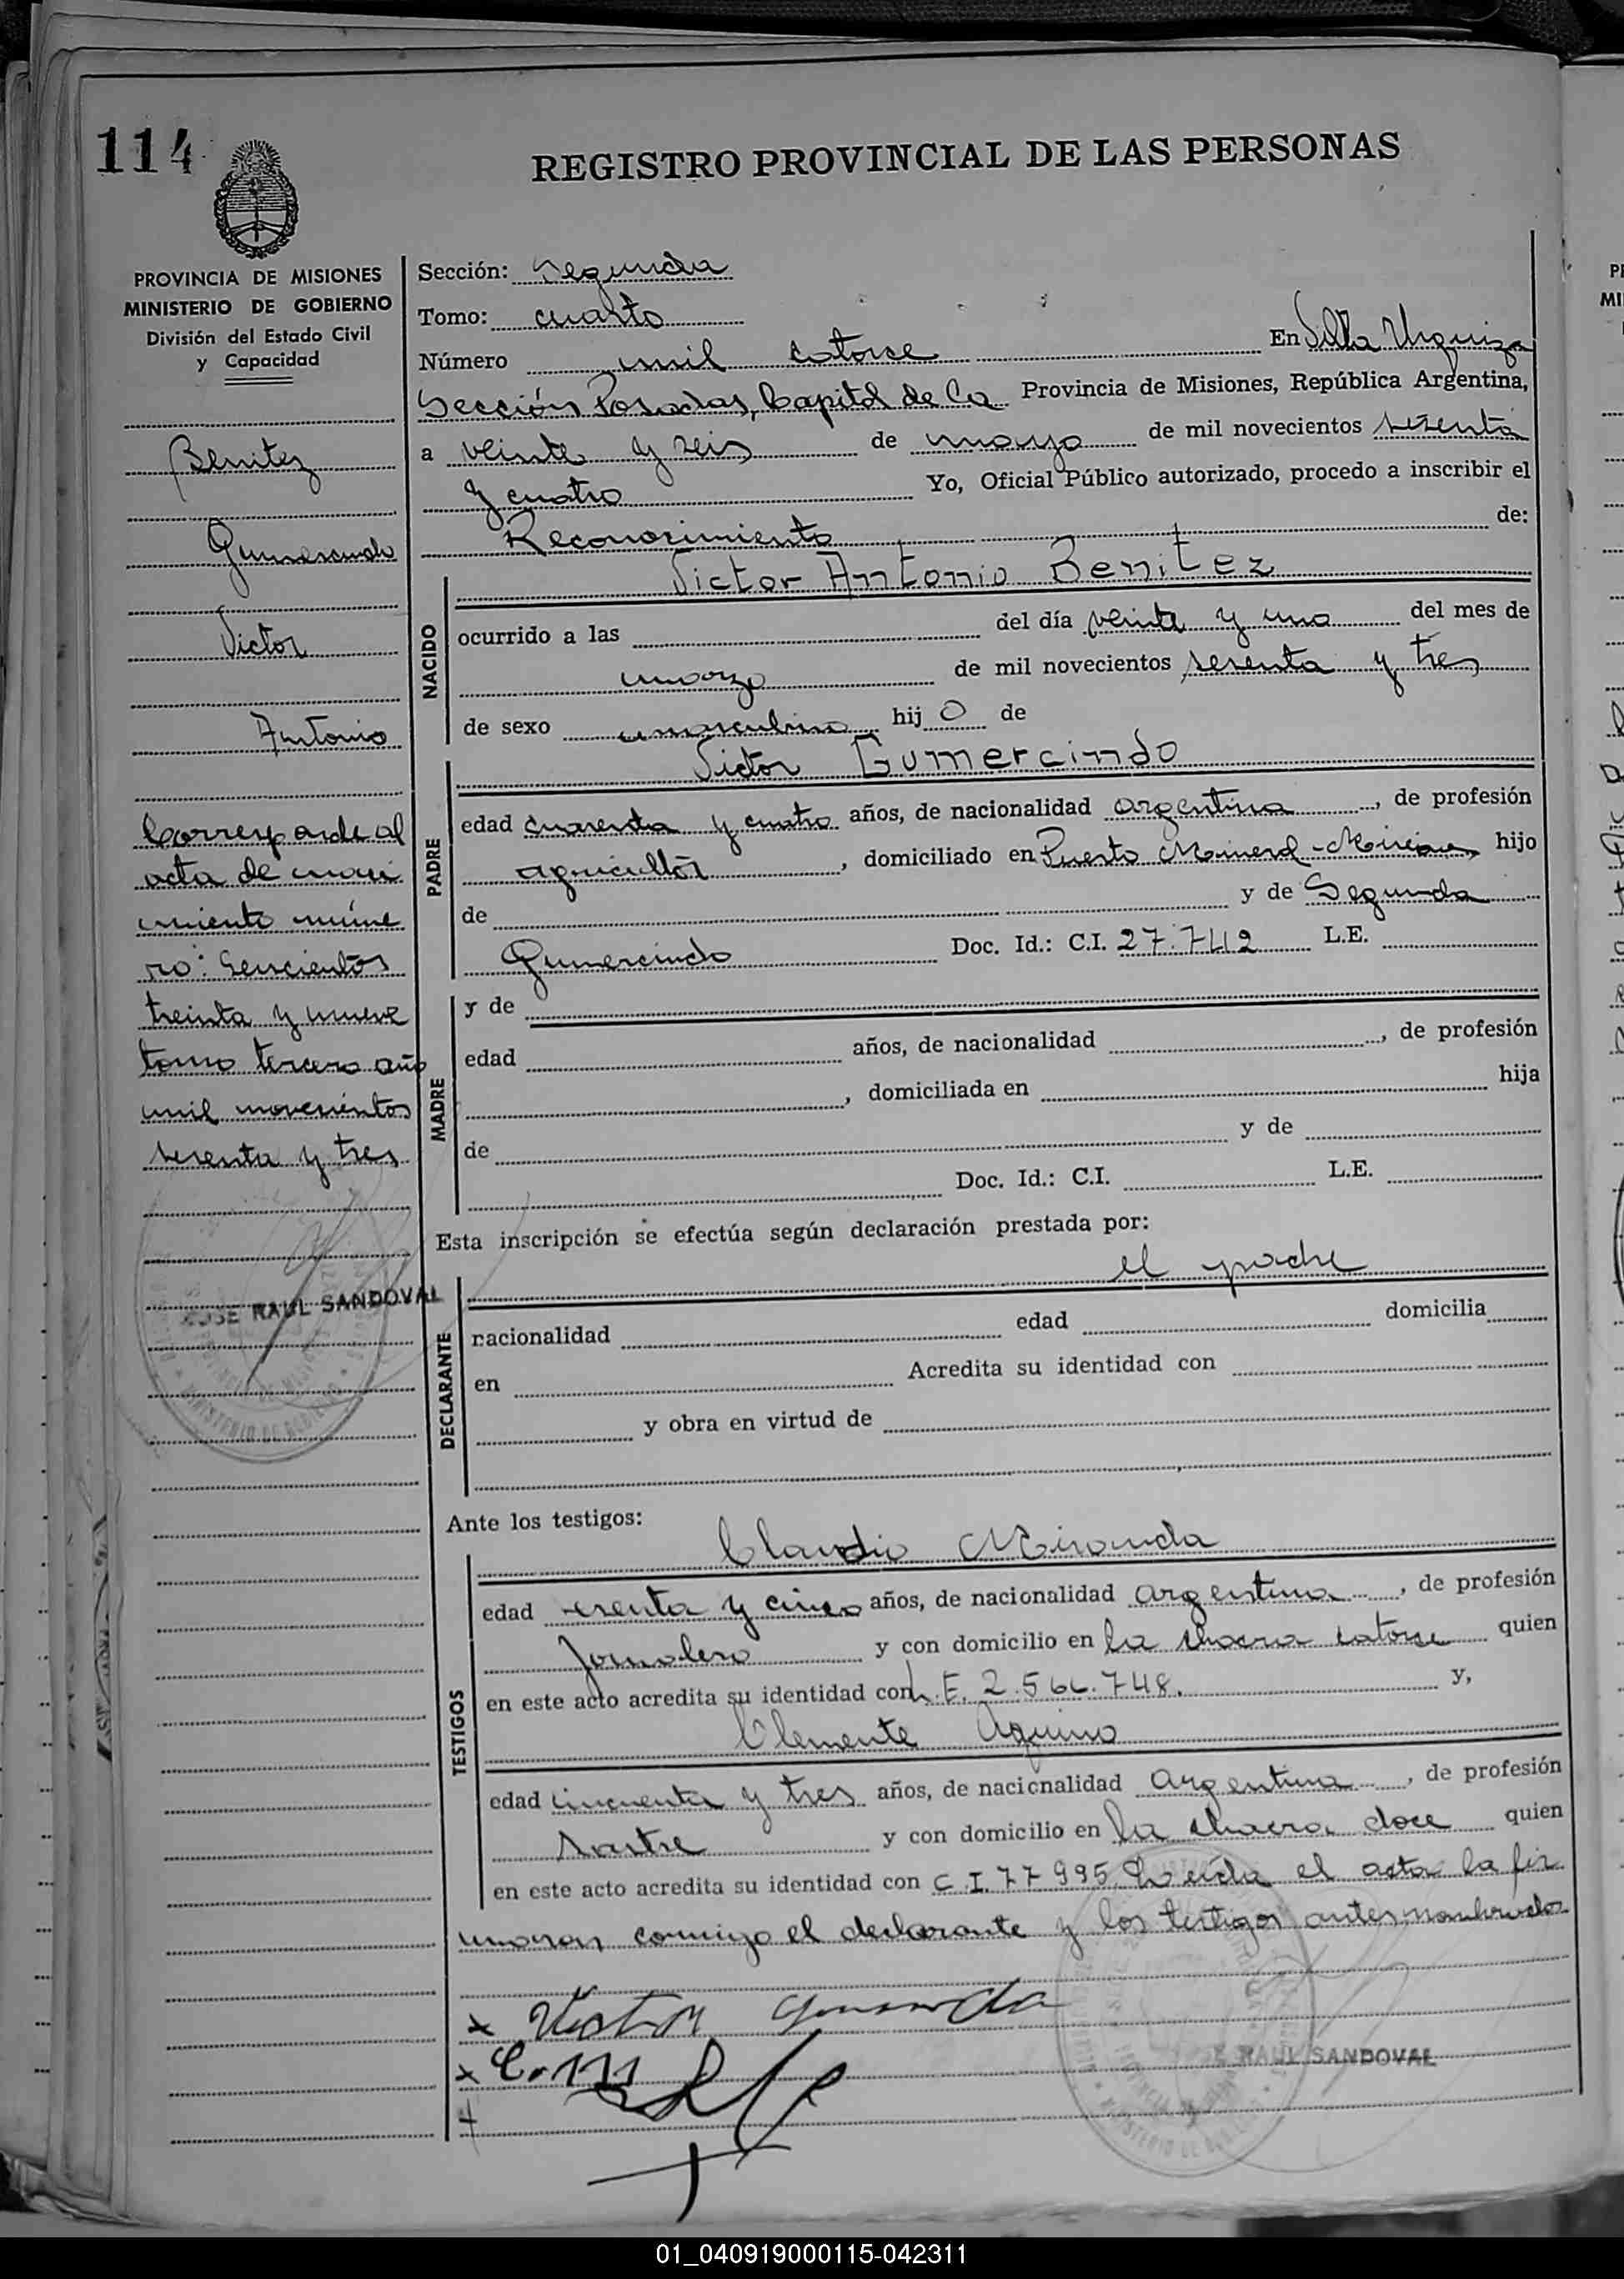 114
REGISTRO PROVINCIAL DE LAS PERSONAS
PROVINCIA DE MISIONES
MINISTERIO DE GOBIERNO
División del Estado Civil
y Capacidad
Benitez
Gumercindo
Victor
Antonio
Corresponde al
acta de naci
miento núme
ro: Seiscientos
treinta y nueve
tomo tercero año
mil novecientos
sesenta y tres
JOSE RAUL SANDOVAL
MINISTERIO DE GOBIERNO
Sección: Segunda
Tomo: cuarto
Número mil catorce En Villa Urquiza
Sección Posadas, Capital de la Provincia de Misiones, República Argentina,
a veinte y seis de marzo de mil novecientos sesenta
y cuatro Yo, Oficial Público autorizado, procedo a inscribir el
Reconocimiento de:
Victor Antonio Benitez
NACIDO
ocurrido a las del día veinte y uno del mes de
marzo de mil novecientos sesenta y tres
de sexo masculino hij o de
Victor Gumercindo
PADRE
edad cuarenta y cuatro años, de nacionalidad argentina, de profesión
agricultor, domiciliado en Puerto Mineral - Misiones, hijo
de y de Segunda
Gumercindo Doc. Id.: C.I. 27.742 L.E.
MADRE
y de
edad años, de nacionalidad , de profesión
, domiciliada en hija
de y de
Doc. Id.: C.I. L.E.
Esta inscripción se efectúa según declaración prestada por:
el padre
DECLARANTE
nacionalidad edad domicilia
en Acredita su identidad con
y obra en virtud de
Ante los testigos:
Claudio Miranda
TESTIGOS
edad sesenta y cinco años, de nacionalidad argentina, de profesión
Jornalero y con domicilio en la chacra catorce quien
en este acto acredita su identidad con L.E. 2.566.748. y,
Clemente Aquino
edad cincuenta y tres años, de nacionalidad argentina, de profesión
Sastre y con domicilio en la chacra doce quien
en este acto acredita su identidad con C.I. 77995. Leída el acta la fir
maron conmigo el declarante y los testigos antes nombrados
x Victor
x C.M
RAUL SANDOVAL
01_040919000115-042311